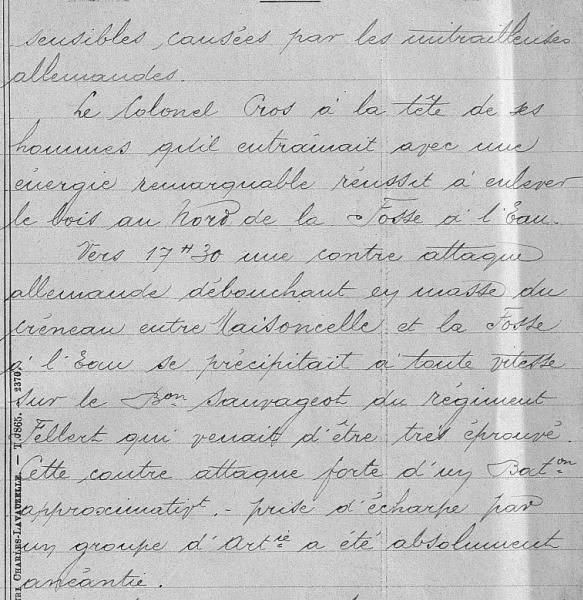 sensibles, causées par les mitrailleuses
allemandes.
Le Colonel Cros à la tête de ses
hommes qu'il entraînait avec une
énergie remarquable réussit à enlever
le bois au Nord de la Fosse à l'Eau.
Vers 17H30 une contre attaque
allemande débouchant en masse du
créneau entre Maisoncelle et la Fosse
à l'Eau se précipitait à toute vitesse
sur le Bon Sauvageot du régiment
Fellert qui venait d'être très éprouvé.
Cette contre attaque forte d'un Baton
approximativt. - prise d'écharpe par
un groupe d'Artie a été absolument
anéantie.
CHARLES-LAVAUZELLE. — T. J865. 2370.